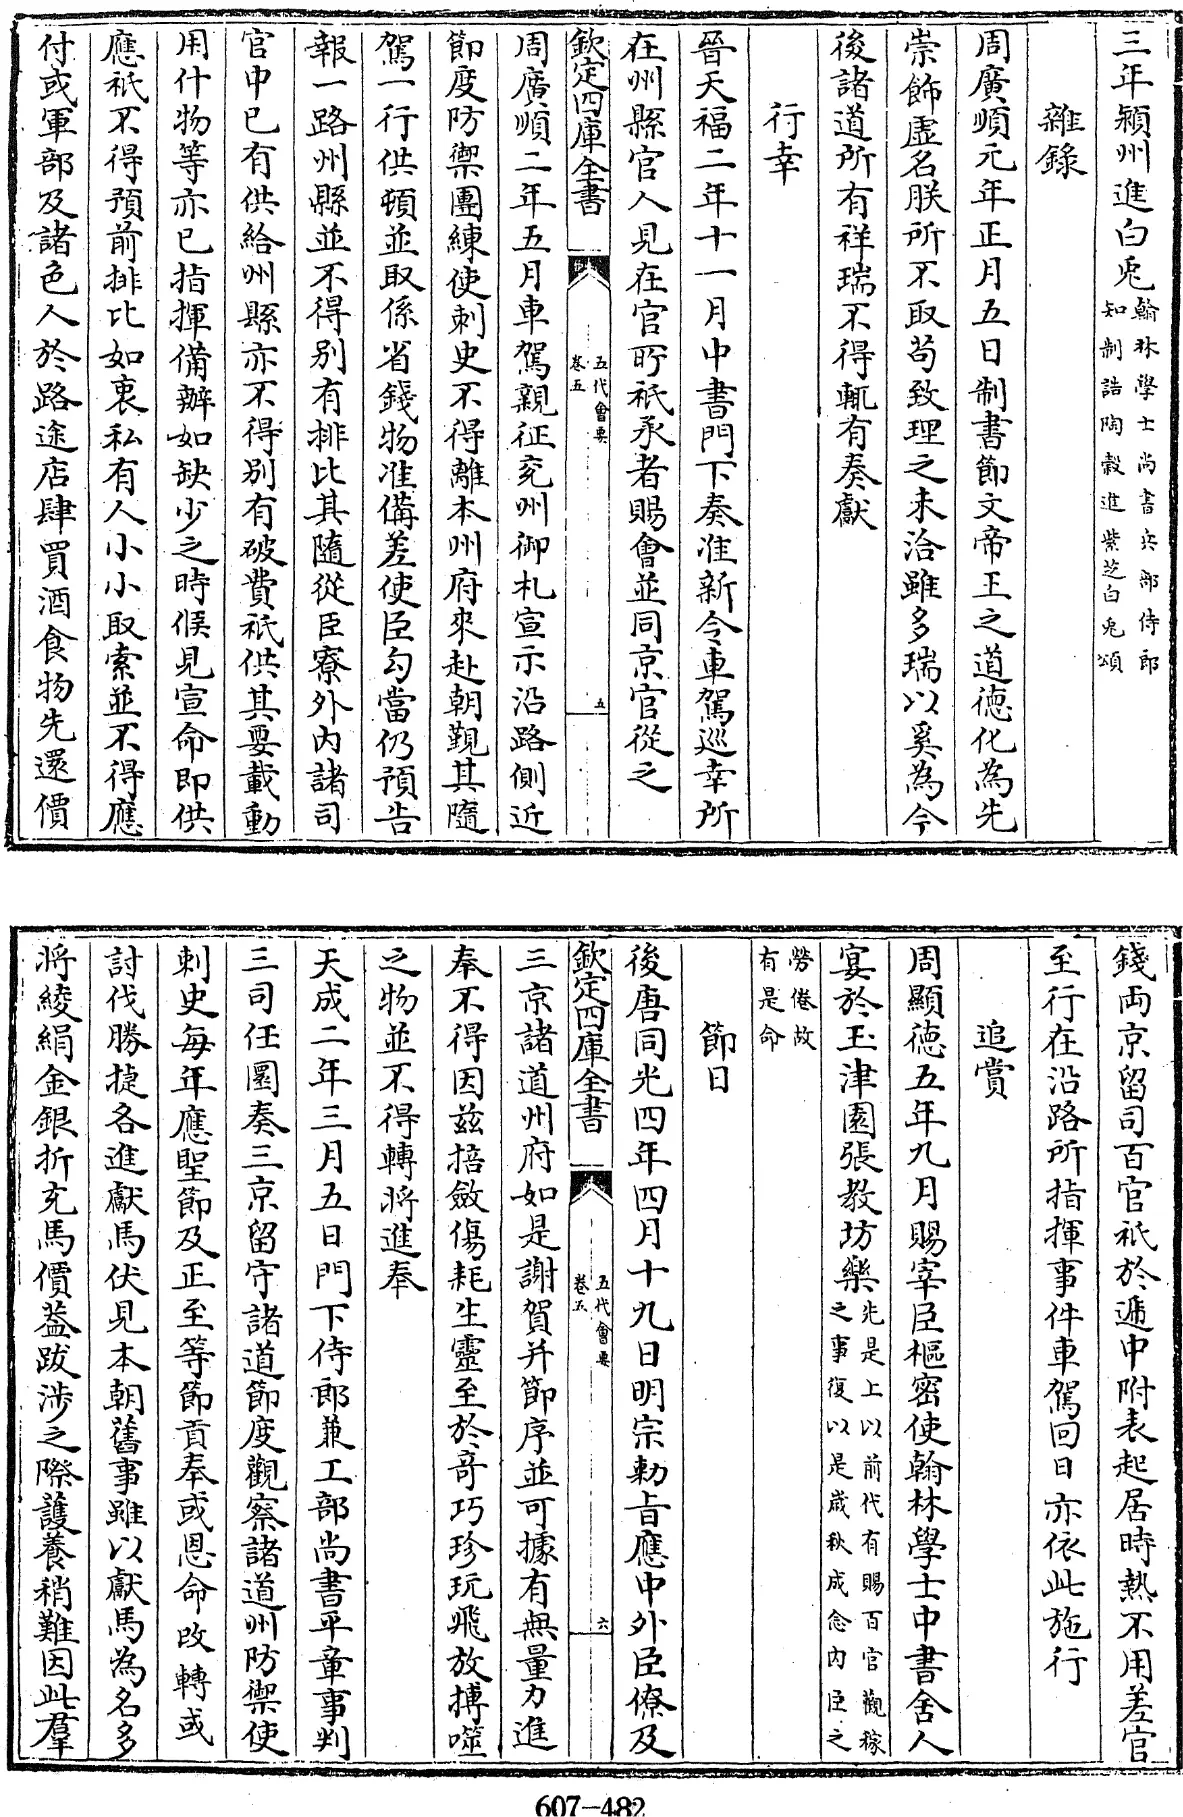 三年潁州進白兎翰林學士尚書兵部侍郎
知制誥陶穀進紫芝白兎頌
雜錄
周廣順元年正月五日制書節文帝王之道德化為先
崇飾虛名朕所不取苟致理之未洽雖多瑞以奚為今
後諸道所有祥瑞不得輒有奏獻
行幸
晉天福二年十一月中書門下奏准新令車駕巡幸所
在州縣官人見在官所祇承者賜會並同京官從之
欽定四庫全書
五代會要
卷五
五
周廣順二年五月車駕親征兖州御札宣示沿路側近
節度防禦團練使刺史不得離本州府來赴朝覲其隨
駕一行供頓並取係省錢物准備差使臣勾當仍預告
報一路州縣並不得別有排比其隨從臣寮外內諸司
官中已有供給州縣亦不得別有破費祇供其要載動
用什物等亦已指揮備辦如缺少之時候見宣命即供
應祇不得預前排比如衷私有人小小取索並不得應
付或軍部及諸色人於路途店肆買酒食物先還價
錢兩京留司百官祇於遞中附表起居時熱不用差官
至行在沿路所指揮事件車駕回日亦依此施行
追賞
周顯德五年九月賜宰臣樞密使翰林學士中書舍人
宴於玉津園張教坊樂先是上以前代有賜百官觀稼
之事復以是歲秋成念內臣之
勞倦故
有是命
節日
後唐同光四年四月十九日明宗勅旨應中外臣僚及
欽定四庫全書
五代會要
卷五
六
三京諸道州府如是謝賀并節序並可據有無量力進
奉不得因兹掊斂傷耗生靈至於奇巧珍玩飛放搏噬
之物並不得轉將進奉
天成二年三月五日門下侍郎兼工部尚書平章事判
三司任圜奏三京留守諸道節度觀察諸道州防禦使
刺史每年應聖節及正至等節貢奉或恩命改轉或
討伐勝捷各進獻馬伏見本朝舊事雖以獻馬為名多
將綾絹金銀折充馬價葢跋涉之際護養稍難因此羣
607-482